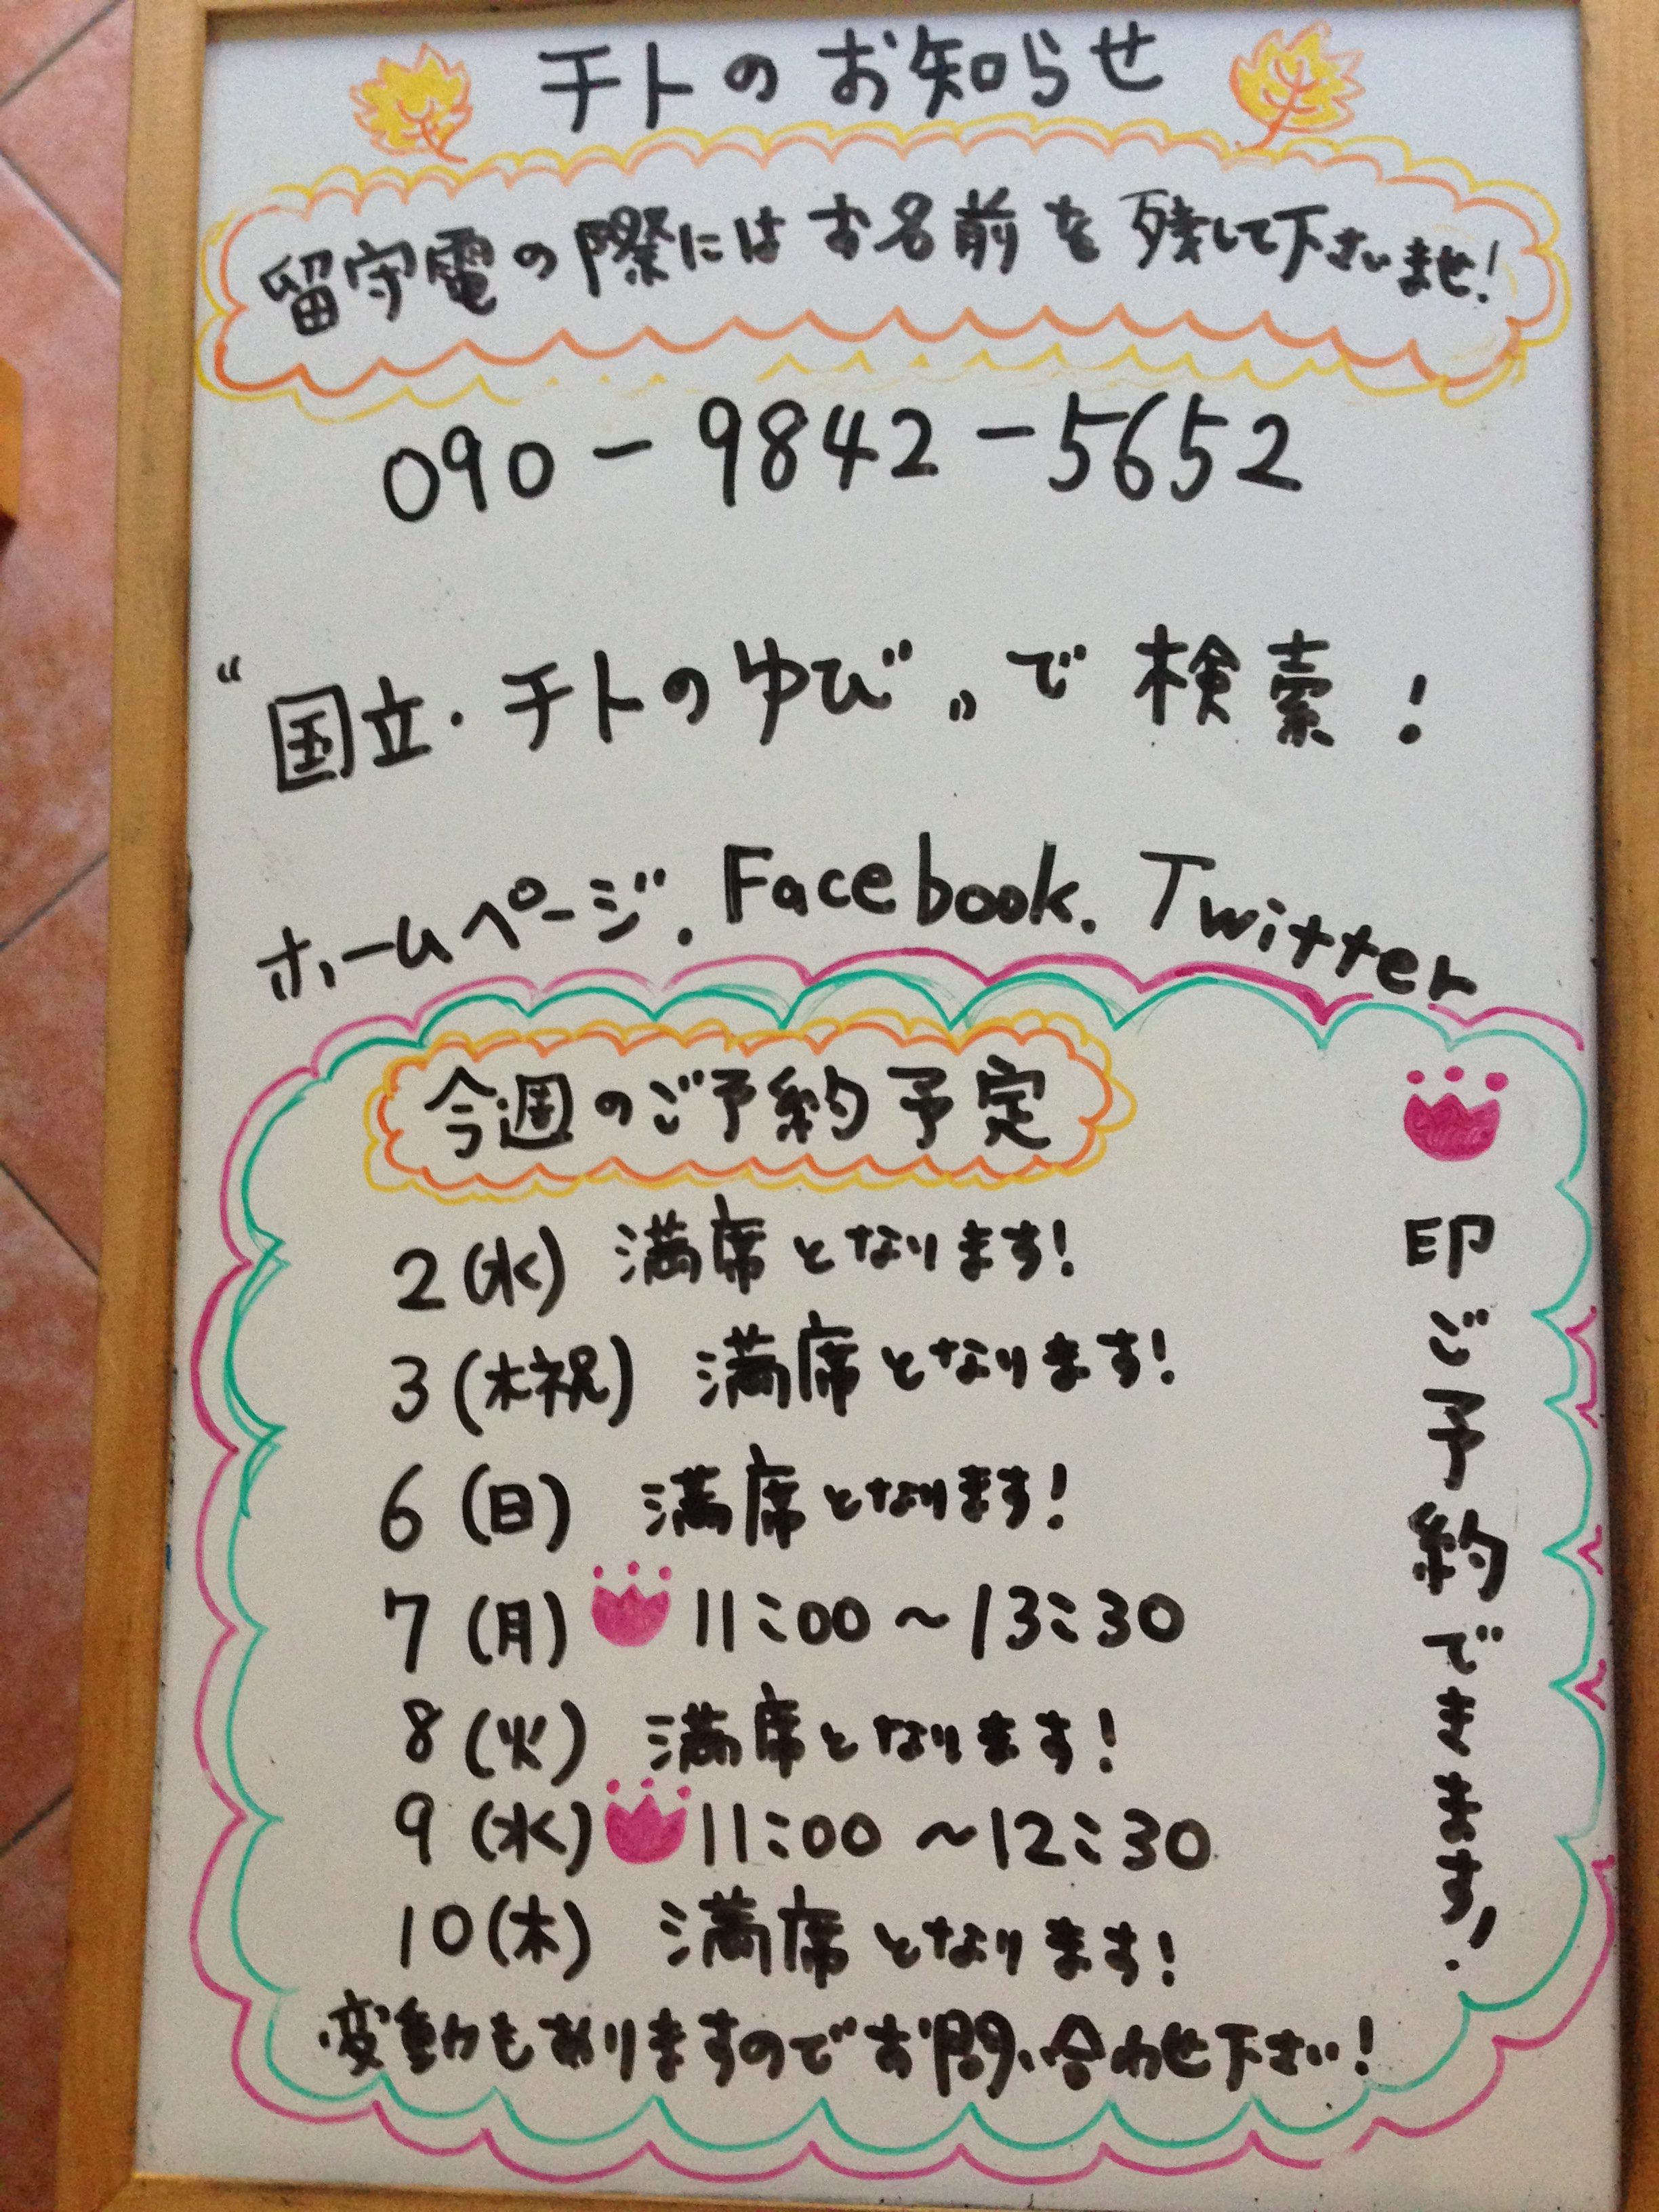 チトのお知らせ
留守電の際にはお名前を残して下さいませ!
090-9842-5652
“国立・チトのゆび”で検索!
ホームページ.Facebook.Twitter
今週のご予約予定
2(水) 満席となります!
3(木祝) 満席となります!
6(日) 満席となります!
7(月) 11:00~13:30
8(火) 満席となります!
9(水) 11:00~12:30
10(木) 満席となります!
変動もありますのでお問い合わせ下さい!
印ご予約できます!